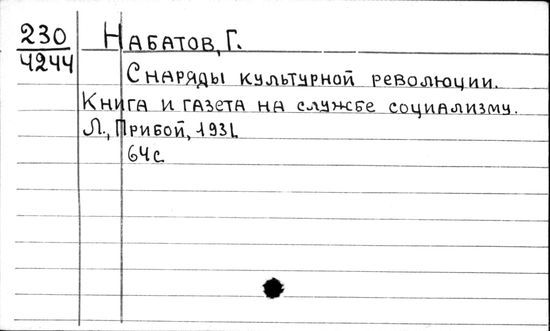 230
4244
Набатов, Г.
Снаряды культурной революции.
Книга и газета на службе социализму.
Л., Прибой, 1931.
64 с.